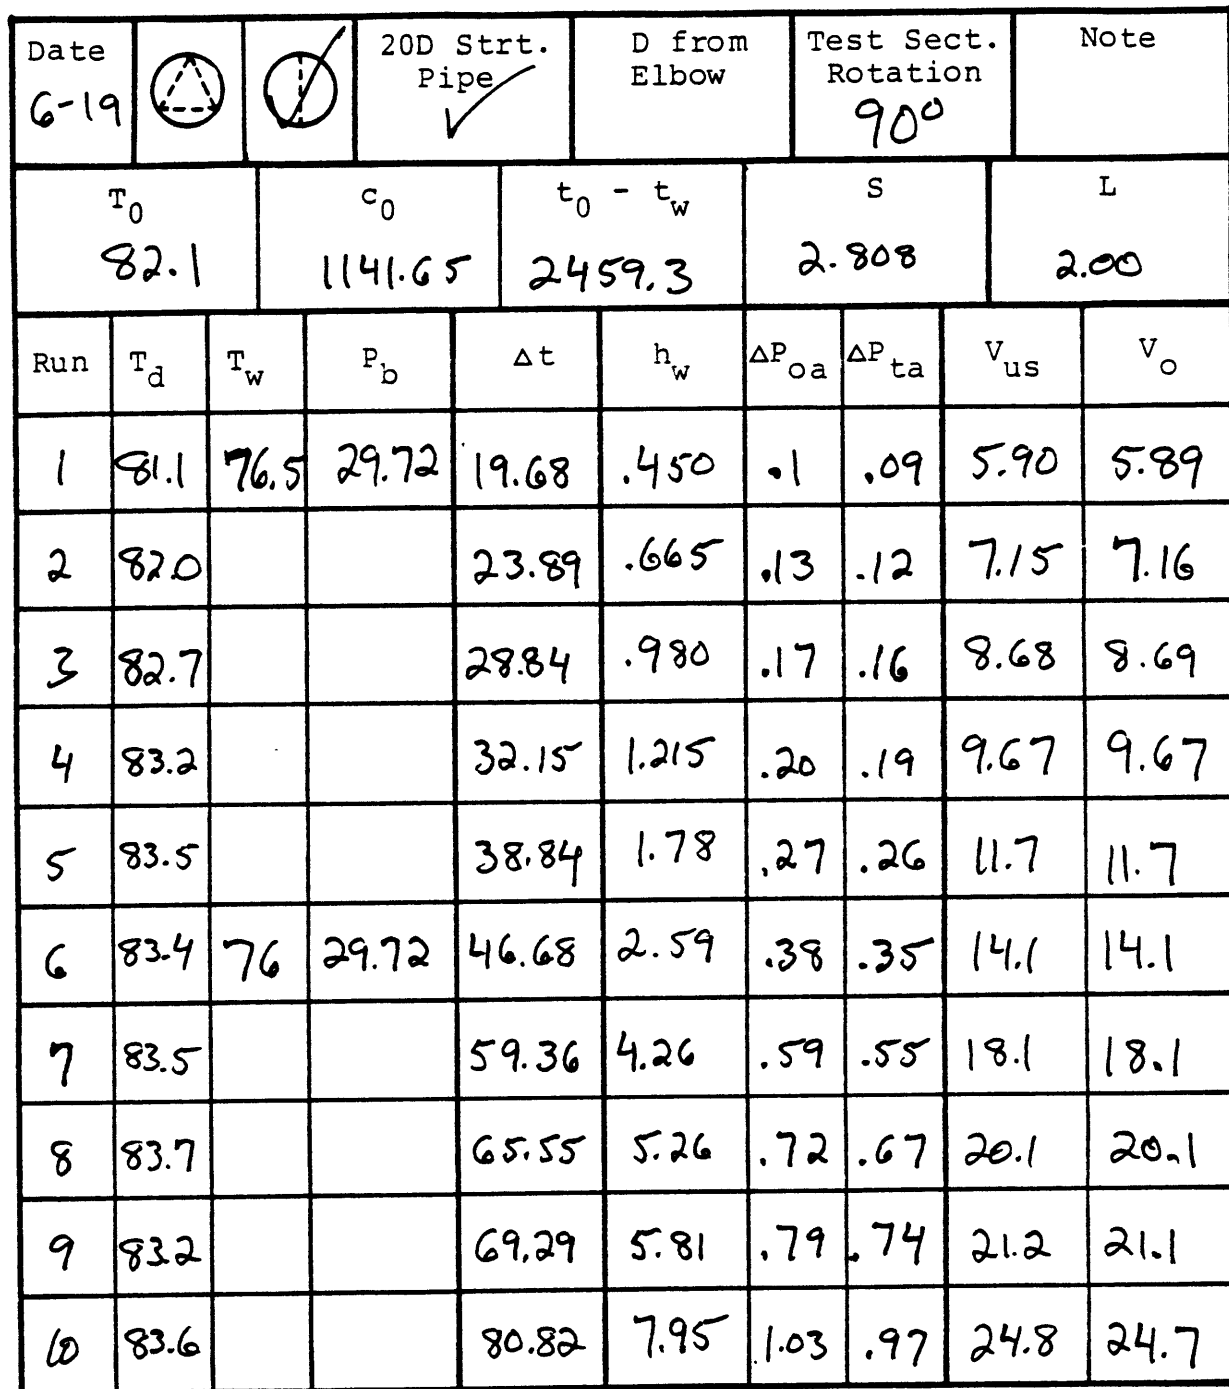 Date 20D Strt. D from Test Sect. Note
Pipe Elbow Rotation
6-19 ✓ 90°
T0 c0 t0 - tw S L
82.1 1141.65 2459.3 2.808 2.00
Run Td Tw Pb Δt hw ΔPoa ΔPta Vus Vo
1 81.1 76.5 29.72 19.68 .450 .1 .09 5.90 5.89
2 82.0 23.89 .665 .13 .12 7.15 7.16
3 82.7 28.84 .980 .17 .16 8.68 8.69
4 83.2 32.15 1.215 .20 .19 9.67 9.67
5 83.5 38.84 1.78 .27 .26 11.7 11.7
6 83.4 76 29.72 46.68 2.59 .38 .35 14.1 14.1
7 83.5 59.36 4.26 .59 .55 18.1 18.1
8 83.7 65.55 5.26 .72 .67 20.1 20.1
9 83.2 69.29 5.81 .79 .74 21.2 21.1
10 83.6 80.82 7.95 1.03 .97 24.8 24.7